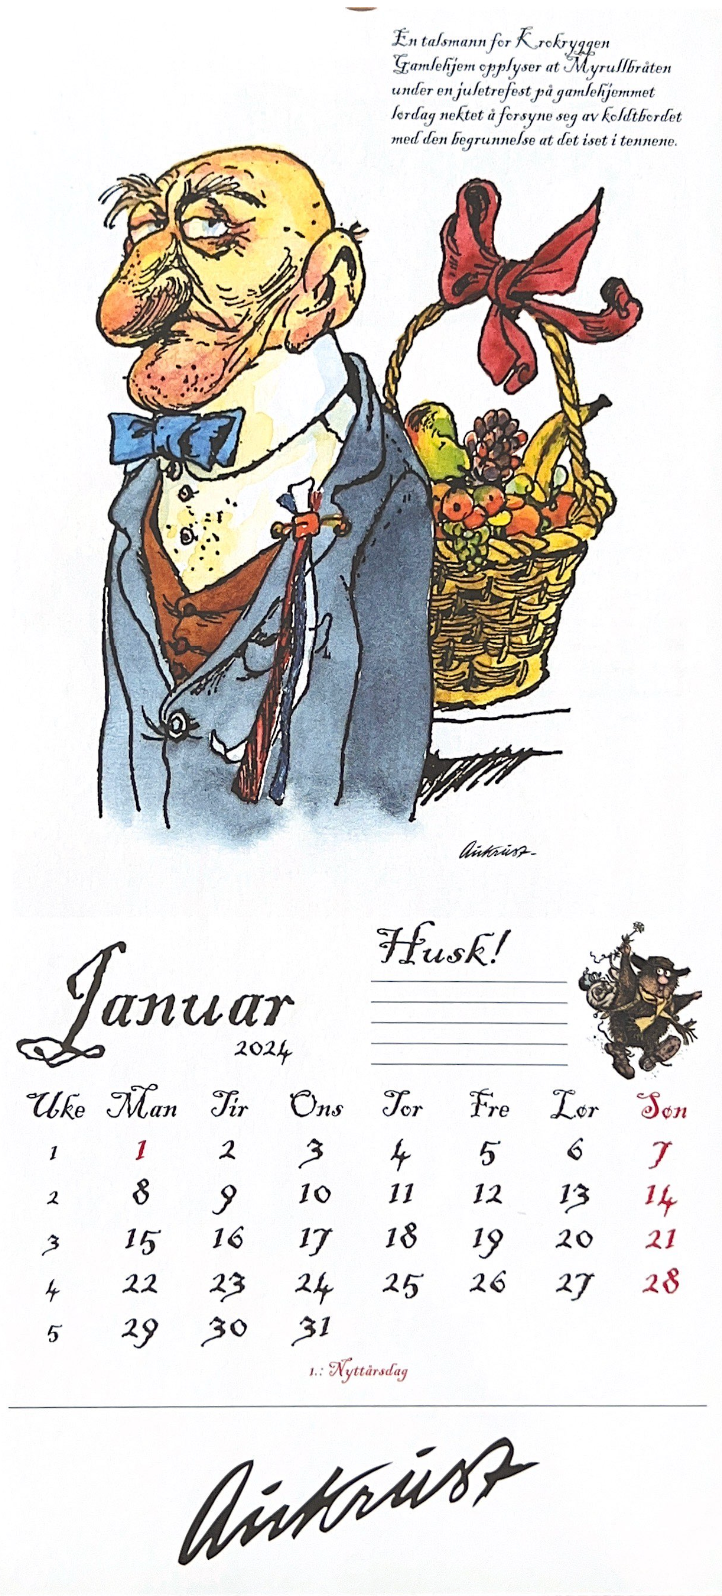 En talsmann for Krokryggen
Gamlehjem opplyser at Myrullbråten
under en juletrefest på gamlehjemmet
lørdag nektet å forsyne seg av koldtbordet
med den begrunnelse at det iset i tennene.
Aukrust-
Husk!
Januar
2024
Uke Man Tir Ons Tor Fre Lør Søn
1 1 2 3 4 5 6 7
2 8 9 10 11 12 13 14
3 15 16 17 18 19 20 21
4 22 23 24 25 26 27 28
5 29 30 31
1.: Nyttårsdag
Aukrust